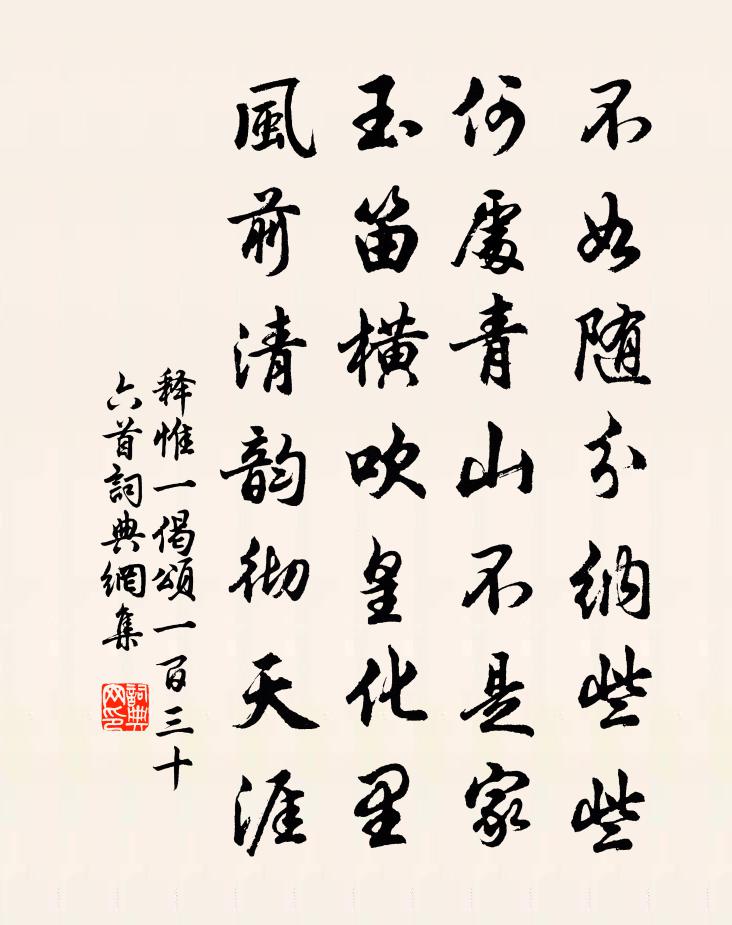 不如随分納些些
何處青山不是家
玉笛橫吹皇化里
風前清韵彻天涯
释惟一偈頌一百三十
六首詞典網集
詞典
网印